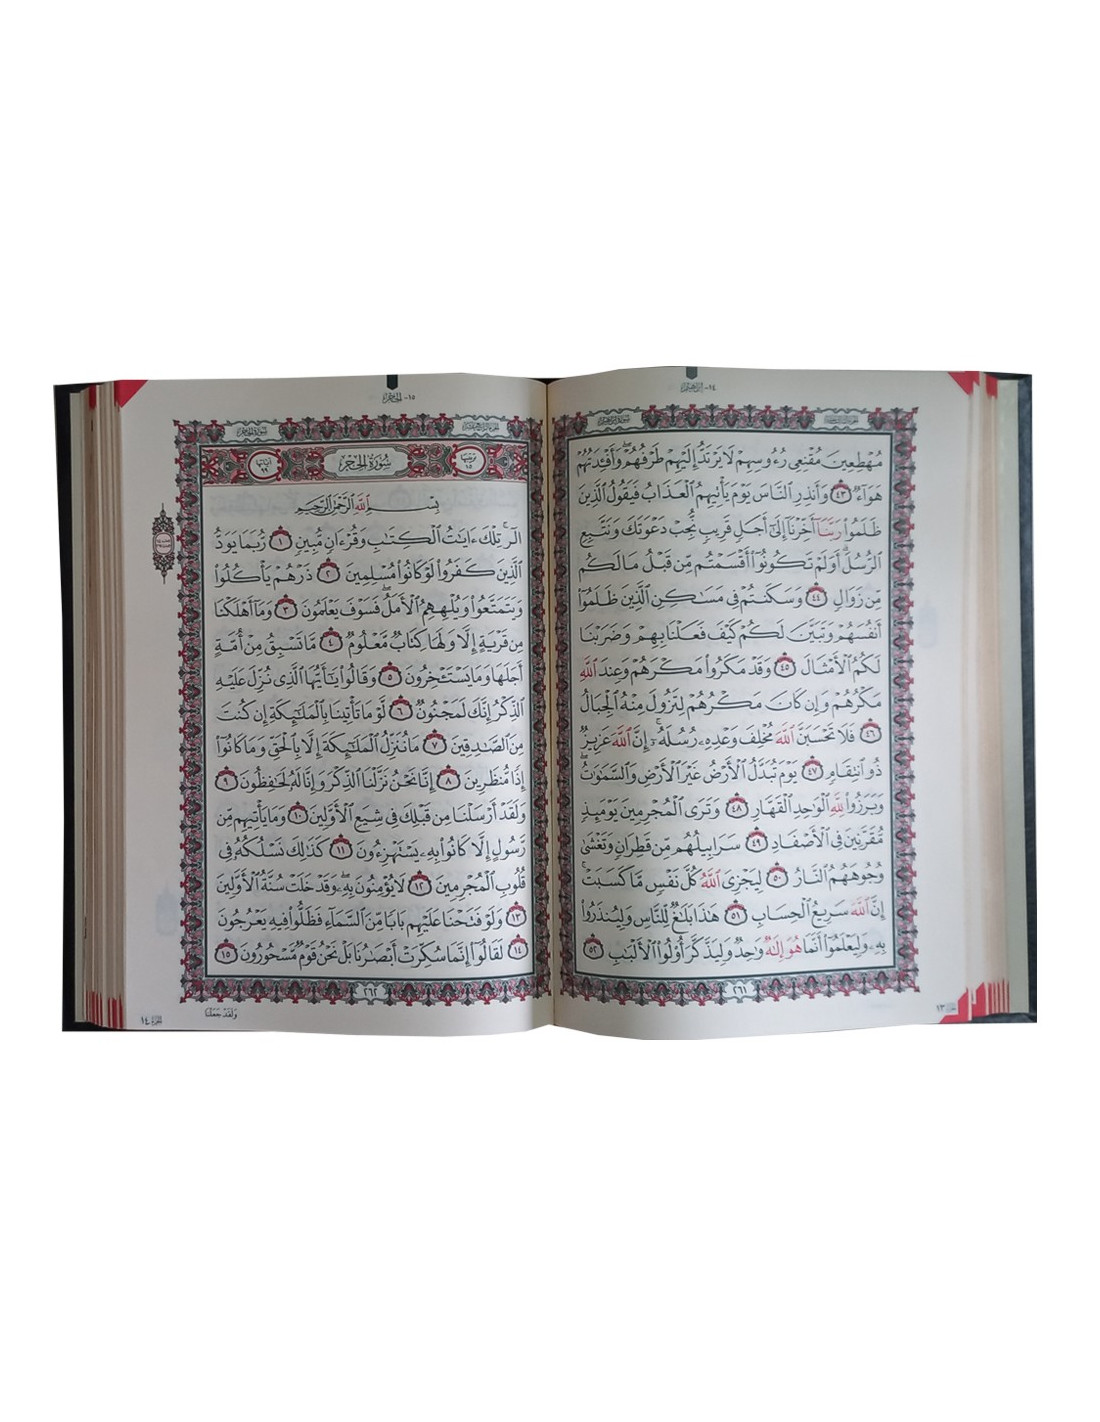 ١٤- إبراهيم
مُهْطِعِينَ مُقْنِعِى رُءُوسِهِمْ لَا يَرْتَدُّ إِلَيْهِمْ طَرْفُهُمْ ۖ وَأَفْـِٔدَتُهُمْ
هَوَآءٌ ٤٣ وَأَنذِرِ ٱلنَّاسَ يَوْمَ يَأْتِيهِمُ ٱلْعَذَابُ فَيَقُولُ ٱلَّذِينَ
ظَلَمُوا۟ رَبَّنَآ أَخِّرْنَآ إِلَىٰٓ أَجَلٍ قَرِيبٍ نُّجِبْ دَعْوَتَكَ وَنَتَّبِعِ
ٱلرُّسُلَ ۗ أَوَلَمْ تَكُونُوٓا۟ أَقْسَمْتُم مِّن قَبْلُ مَا لَكُم
مِّن زَوَالٍ ٤٤ وَسَكَنتُمْ فِى مَسَـٰكِنِ ٱلَّذِينَ ظَلَمُوٓا۟
أَنفُسَهُمْ وَتَبَيَّنَ لَكُمْ كَيْفَ فَعَلْنَا بِهِمْ وَضَرَبْنَا
لَكُمُ ٱلْأَمْثَالَ ٤٥ وَقَدْ مَكَرُوا۟ مَكْرَهُمْ وَعِندَ ٱللَّهِ
مَكْرُهُمْ وَإِن كَانَ مَكْرُهُمْ لِتَزُولَ مِنْهُ ٱلْجِبَالُ
٤٦ فَلَا تَحْسَبَنَّ ٱللَّهَ مُخْلِفَ وَعْدِهِۦ رُسُلَهُۥٓ ۗ إِنَّ ٱللَّهَ عَزِيزٌ
ذُو ٱنتِقَامٍ ٤٧ يَوْمَ تُبَدَّلُ ٱلْأَرْضُ غَيْرَ ٱلْأَرْضِ وَٱلسَّمَـٰوَٰتُ ۖ
وَبَرَزُوا۟ لِلَّهِ ٱلْوَٰحِدِ ٱلْقَهَّارِ ٤٨ وَتَرَى ٱلْمُجْرِمِينَ يَوْمَئِذٍ
مُّقَرَّنِينَ فِى ٱلْأَصْفَادِ ٤٩ سَرَابِيلُهُم مِّن قَطِرَانٍ وَتَغْشَىٰ
وُجُوهَهُمُ ٱلنَّارُ ٥٠ لِيَجْزِىَ ٱللَّهُ كُلَّ نَفْسٍ مَّا كَسَبَتْ ۚ
إِنَّ ٱللَّهَ سَرِيعُ ٱلْحِسَابِ ٥١ هَـٰذَا بَلَـٰغٌ لِّلنَّاسِ وَلِيُنذَرُوا۟
بِهِۦ وَلِيَعْلَمُوٓا۟ أَنَّمَا هُوَ إِلَـٰهٌ وَٰحِدٌ وَلِيَذَّكَّرَ أُو۟لُوا۟ ٱلْأَلْبَـٰبِ ٥٢
٢٦١
الجزء ١٣
١٥- الحجر
سورة الحجر
ترتيبها ١٥ سُورَةُ الحِجْرِ آياتها ٩٩
بِسْمِ ٱللَّهِ ٱلرَّحْمَـٰنِ ٱلرَّحِيمِ
الٓر ۚ تِلْكَ ءَايَـٰتُ ٱلْكِتَـٰبِ وَقُرْءَانٍ مُّبِينٍ ١ رُّبَمَا يَوَدُّ
ٱلَّذِينَ كَفَرُوا۟ لَوْ كَانُوا۟ مُسْلِمِينَ ٢ ذَرْهُمْ يَأْكُلُوا۟
وَيَتَمَتَّعُوا۟ وَيُلْهِهِمُ ٱلْأَمَلُ ۖ فَسَوْفَ يَعْلَمُونَ ٣ وَمَآ أَهْلَكْنَا
مِن قَرْيَةٍ إِلَّا وَلَهَا كِتَابٌ مَّعْلُومٌ ٤ مَّا تَسْبِقُ مِنْ أُمَّةٍ
أَجَلَهَا وَمَا يَسْتَـْٔخِرُونَ ٥ وَقَالُوا۟ يَـٰٓأَيُّهَا ٱلَّذِى نُزِّلَ عَلَيْهِ
ٱلذِّكْرُ إِنَّكَ لَمَجْنُونٌ ٦ لَّوْ مَا تَأْتِينَا بِٱلْمَلَـٰٓئِكَةِ إِن كُنتَ
مِنَ ٱلصَّـٰدِقِينَ ٧ مَا نُنَزِّلُ ٱلْمَلَـٰٓئِكَةَ إِلَّا بِٱلْحَقِّ وَمَا كَانُوٓا۟
إِذًا مُّنظَرِينَ ٨ إِنَّا نَحْنُ نَزَّلْنَا ٱلذِّكْرَ وَإِنَّا لَهُۥ لَحَـٰفِظُونَ ٩
وَلَقَدْ أَرْسَلْنَا مِن قَبْلِكَ فِى شِيَعِ ٱلْأَوَّلِينَ ١٠ وَمَا يَأْتِيهِم مِّن
رَّسُولٍ إِلَّا كَانُوا۟ بِهِۦ يَسْتَهْزِءُونَ ١١ كَذَٰلِكَ نَسْلُكُهُۥ فِى
قُلُوبِ ٱلْمُجْرِمِينَ ١٢ لَا يُؤْمِنُونَ بِهِۦ ۖ وَقَدْ خَلَتْ سُنَّةُ ٱلْأَوَّلِينَ
١٣ وَلَوْ فَتَحْنَا عَلَيْهِم بَابًا مِّنَ ٱلسَّمَآءِ فَظَلُّوا۟ فِيهِ يَعْرُجُونَ
١٤ لَقَالُوٓا۟ إِنَّمَا سُكِّرَتْ أَبْصَـٰرُنَا بَلْ نَحْنُ قَوْمٌ مَّسْحُورُونَ ١٥
٢٦٢
وَلَقَدْ جَعَلْنَا
الجزء ١٤